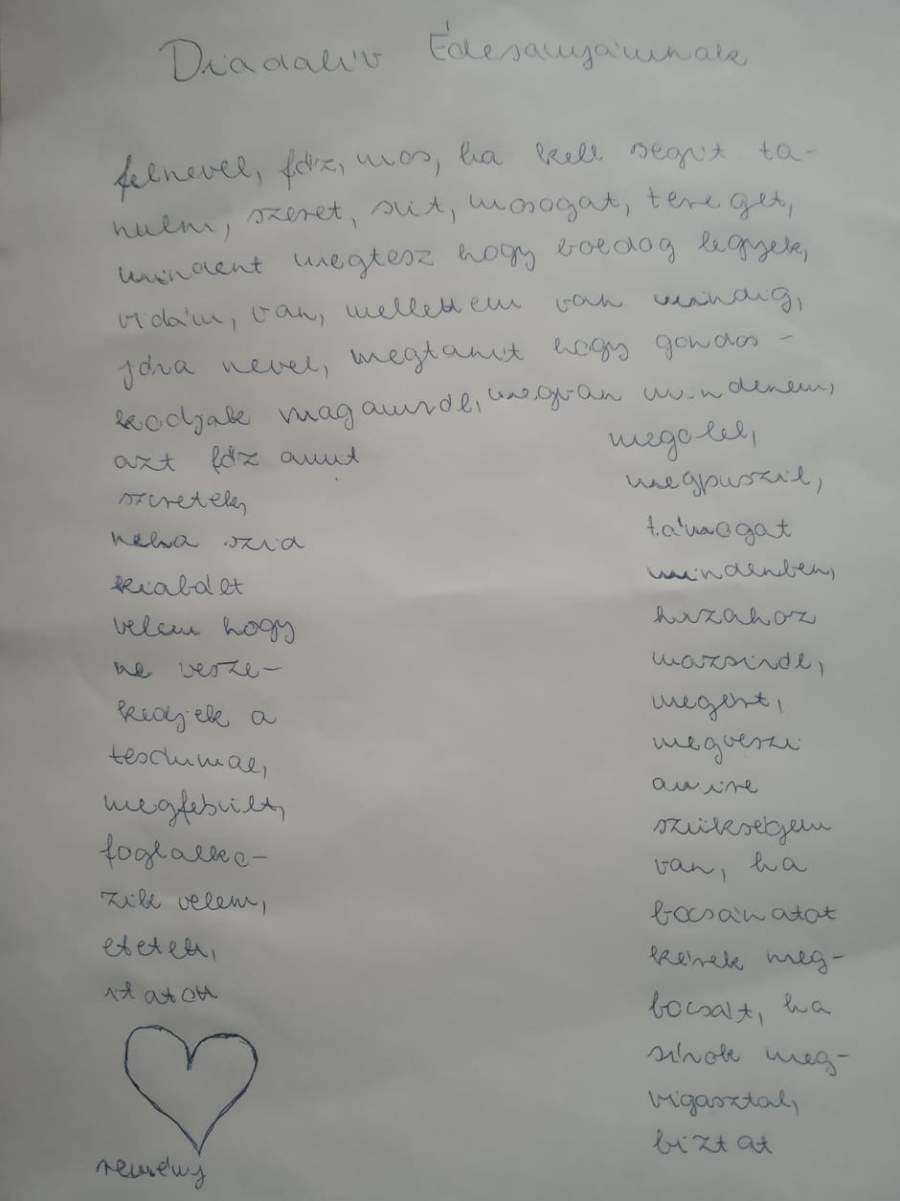 Diadalív Édesanyámnak
felnevel, főz, mos, ha kell segít ta-
nulni, szeret, süt, mosogat, tereget,
mindent megtesz hogy boldog legyek,
vidám, van, mellettem van mindig,
jóra nevel, megtanít hogy gondos-
kodjak magamról, megvan mindenem,
azt főz amit
szeretek,
néha szid
kiabált
velem hogy
ne vesze-
kedjek a
tesómmal,
megfésült,
foglalko-
zik velem,
etetett,
itatott
remény
megölel,
megpuszil,
támogat
mindenben,
hozzához
mazsiról,
megért,
megveszi
amire
szükségem
van, ha
bocsánatot
kérek meg-
bocsát, ha
sírok meg-
vigasztal,
bíztat